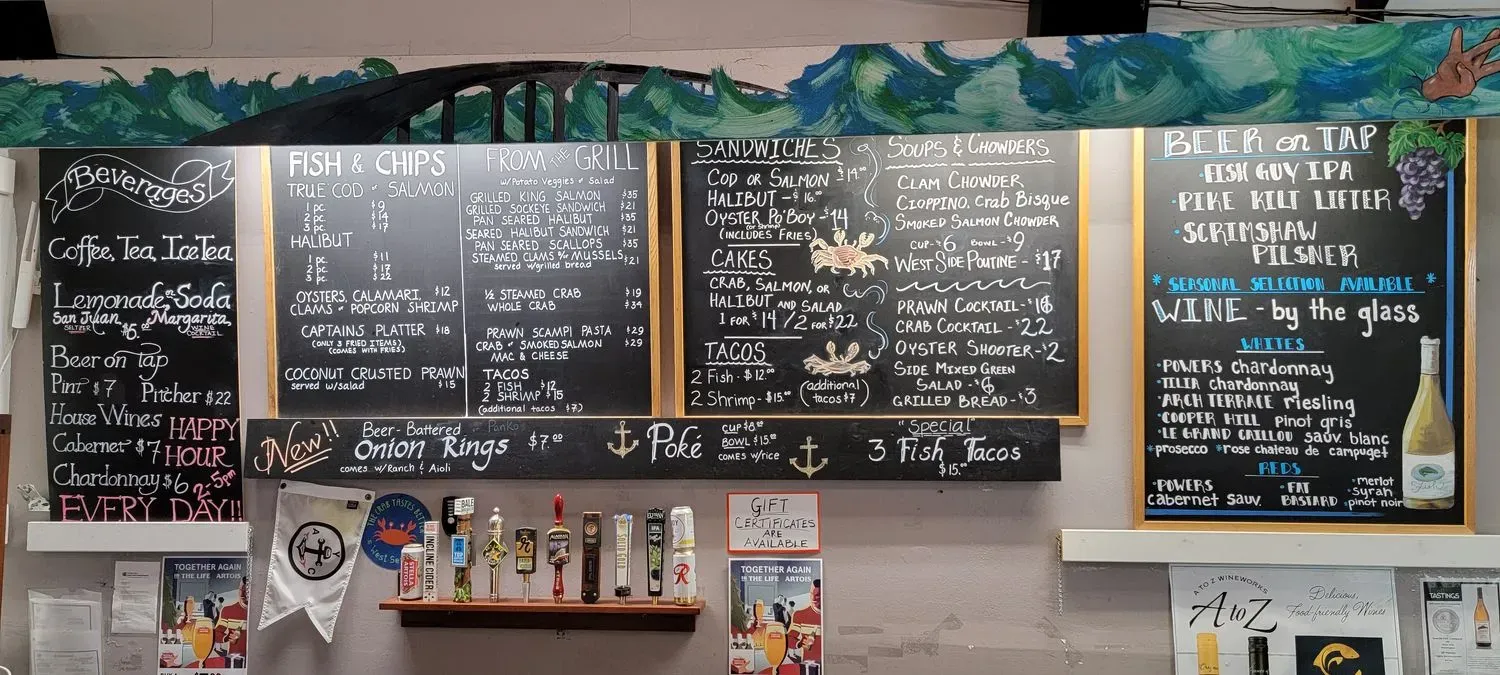 Beverages
Coffee, Tea, Ice Tea
Lemonade or Soda
San Juan Margarita
SELTZER $6.00 WINE COCKTAIL
Beer on Tap
Pint $7 Pitcher $22
House Wines
Cabernet $7
Chardonnay $6
HAPPY
HOUR
2-5pm
EVERY DAY!!
FISH & CHIPS
TRUE COD or SALMON
1 pc. $9
2 pc. $14
3 pc. $17
HALIBUT
1 pc. $11
2 pc. $17
3 pc. $22
OYSTERS, CALAMARI, $12
CLAMS or POPCORN SHRIMP
CAPTAINS PLATTER $18
(ONLY 3 FRIED ITEMS)
(COMES WITH FRIES)
COCONUT CRUSTED PRAWN
served w/salad $15
FROM THE GRILL
w/Potato Veggies or Salad
GRILLED KING SALMON $35
GRILLED SOCKEYE SANDWICH $21
PAN SEARED HALIBUT $35
SEARED HALIBUT SANDWICH $21
PAN SEARED SCALLOPS $35
STEAMED CLAMS &/or MUSSELS $21
served w/grilled bread
1/2 STEAMED CRAB $19
WHOLE CRAB $34
PRAWN SCAMPI PASTA $29
CRAB or SMOKED SALMON $29
MAC & CHEESE
TACOS
2 FISH $12
2 SHRIMP $15
(additional tacos $7)
SANDWICHES
COD OR SALMON $14.00
HALIBUT - $16.00
OYSTER PO'BOY - $14
(or shrimp)
(INCLUDES FRIES)
CAKES
CRAB, SALMON, OR
HALIBUT AND SALAD
1 FOR $14 / 2 FOR $22
TACOS
2 Fish - $12.00
2 Shrimp - $15.00
(additional
tacos $7)
SOUPS & CHOWDERS
CLAM CHOWDER
CIOPPINO, Crab Bisque
SMOKED SALMON CHOWDER
CUP - $6 BOWL - $9
WEST SIDE POUTINE - $17
PRAWN COCKTAIL - $16
CRAB COCKTAIL - $22
OYSTER SHOOTER - $2
SIDE MIXED GREEN
SALAD - $6
GRILLED BREAD - $3
New!!
Beer-Battered Panko
Onion Rings $7.00
comes w/Ranch & Aioli
Poké
CUP $8.00
BOWL $15.00
COMES w/rice
"Special"
3 Fish Tacos
$15.00
BEER on TAP
· FISH GUY IPA
· PIKE KILT LIFTER
· SCRIMSHAW
PILSNER
* SEASONAL SELECTION AVAILABLE *
WINE - by the glass
WHITES
· POWERS chardonnay
· TILIA chardonnay
· ARCH TERRACE riesling
· COOPER HILL pinot gris
· LE GRAND CAILLOU sauv. blanc
*prosecco *rose chateau de campuget
REDS
· POWERS
cabernet sauv.
· FAT
BASTARD
· merlot
· syrah
· pinot noir
THE CRAB TASTES BETTER
West Se
STELLA
ARTOIS
INCLINE CIDER
BALE
IPA
R
GIFT
CERTIFICATES
ARE
AVAILABLE
TOGETHER AGAIN
IN THE LIFE ARTOIS
TOGETHER AGAIN
IN THE LIFE ARTOIS
A TO Z WINEWORKS
A to Z
Delicious,
Food-friendly Wines
TASTINGS